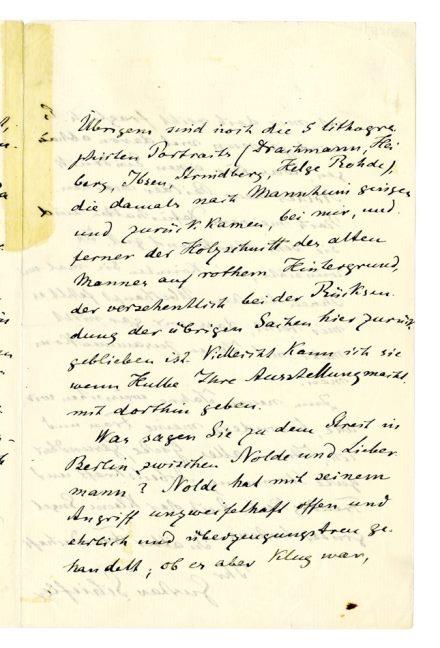 Übrigens sind noch die 5 lithogra
phirten Portraits (Drachmann, Hei
berg, Ibsen, Strindberg, Helge Rohde),
die damals nach Mannheim gingen
und zurück kamen, bei mir, und
ferner der Holzschnitt des alten
Mannes auf rothem Hintergrund,
der versehentlich bei der Rücksen-
dung der übrigen Sachen hier zurück
geblieben ist. Vielleicht kann ich sie
wenn Hulbe Ihre Ausstellung macht,
mit dorthin geben.
Was sagen Sie zu dem Streit in
Berlin zwischen Nolde und Lieber
mann? Nolde hat mit seinem
Angriff unzweifelhaft offen und
ehrlich und überzeugungstreu ge-
handelt; ob er aber klug war,